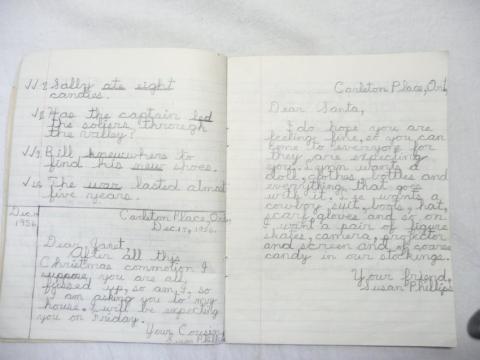 √√ 8 Sally ate eight
candies.
√8 Has the captain led
the solfers throregh
the valley?
√√9 Bill knew where to
find his new shoes.
√10 The war lasted almost
five years.
Dec. 17
1956
Carleton Place, Ont.
Dec. 17, 1956.
Dear Janet,
After all this
Christmas commotion I
suppose you are all
fussed up, so am I, so
I am asking you to my
house. I will be expecting
you on Friday.
Your Cousin,
Susan Phillips
Carleton Place, Ont.
Dear Santa,
I do hope you are
feeling fine, so you can
come to everyone for
they are expecting
you. Lynn wants a
doll, clothes, bottles and
everything that goes
with it. wants a
cowboy suit, boots, hat,
scarf, gloves and so on.
I want a pair of figure
skates, camera, projector
and screen and of course
candy in our stockings.
Your friend,
Susan Phillips